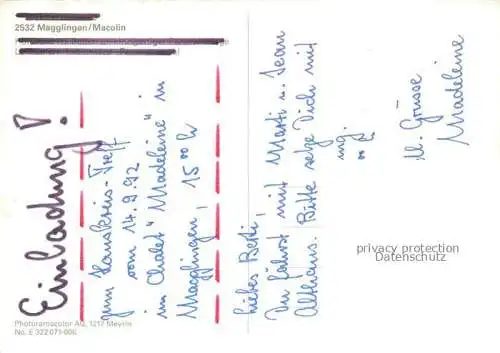 2532 Magglingen/Macolin
Einladung!
zum Hauskreis-Treff
vom 14.9.92
im Chalet "Madeleine" in
Magglingen, 15⁰⁰ h
Liebes Berti,
Du fährst mit Marti u. Jean
Althaus. Bitte setze Dich mit
M. Grüsse
Madeleine
privacy protection
Datenschutz
Photoramacolor AG, 1217 Meyrin
No. E 322 071-006